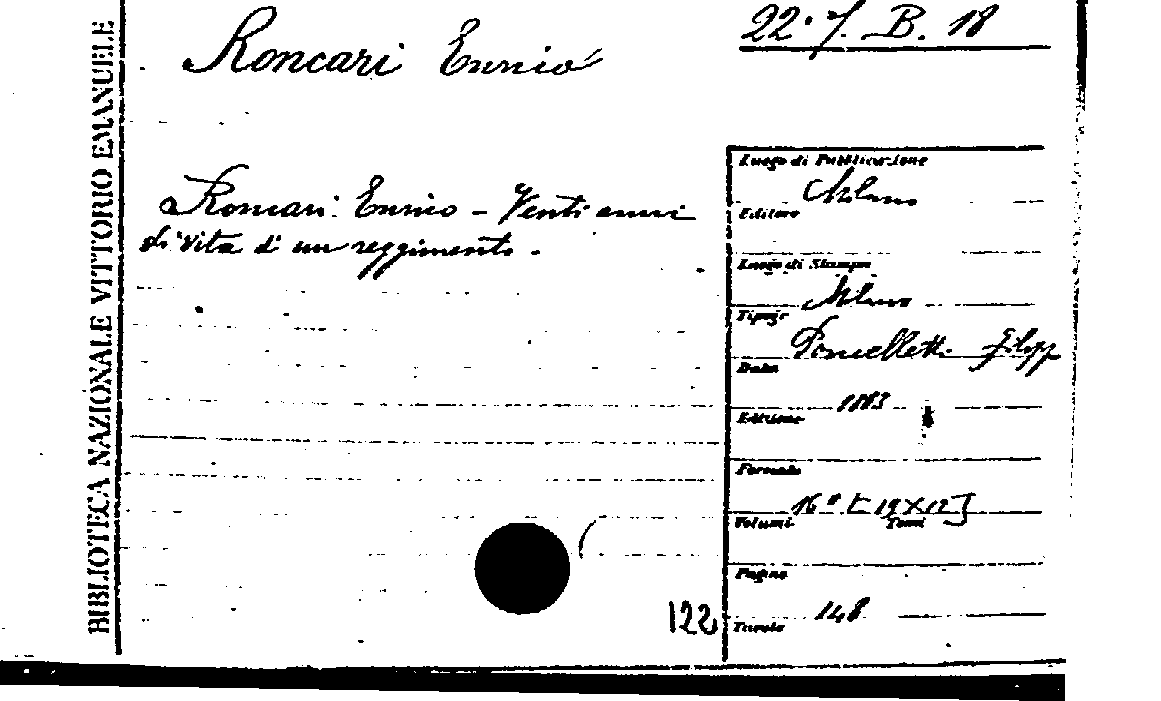 BIBLIOTECA NAZIONALE VITTORIO EMANUELE
Roncari Ennio
22. 7. B. 18
Roncari Ennio – Venti anni
di vita di un reggimento.
Luogo di Pubblicazione
Milano
Editore
Luogo di Stampa
Milano
Tipogr
Poncelletti Filipp
Data
1883
Edizione
Formato
16° [19×12]
Volumi Tomi
Pagine
148
Tavole
122